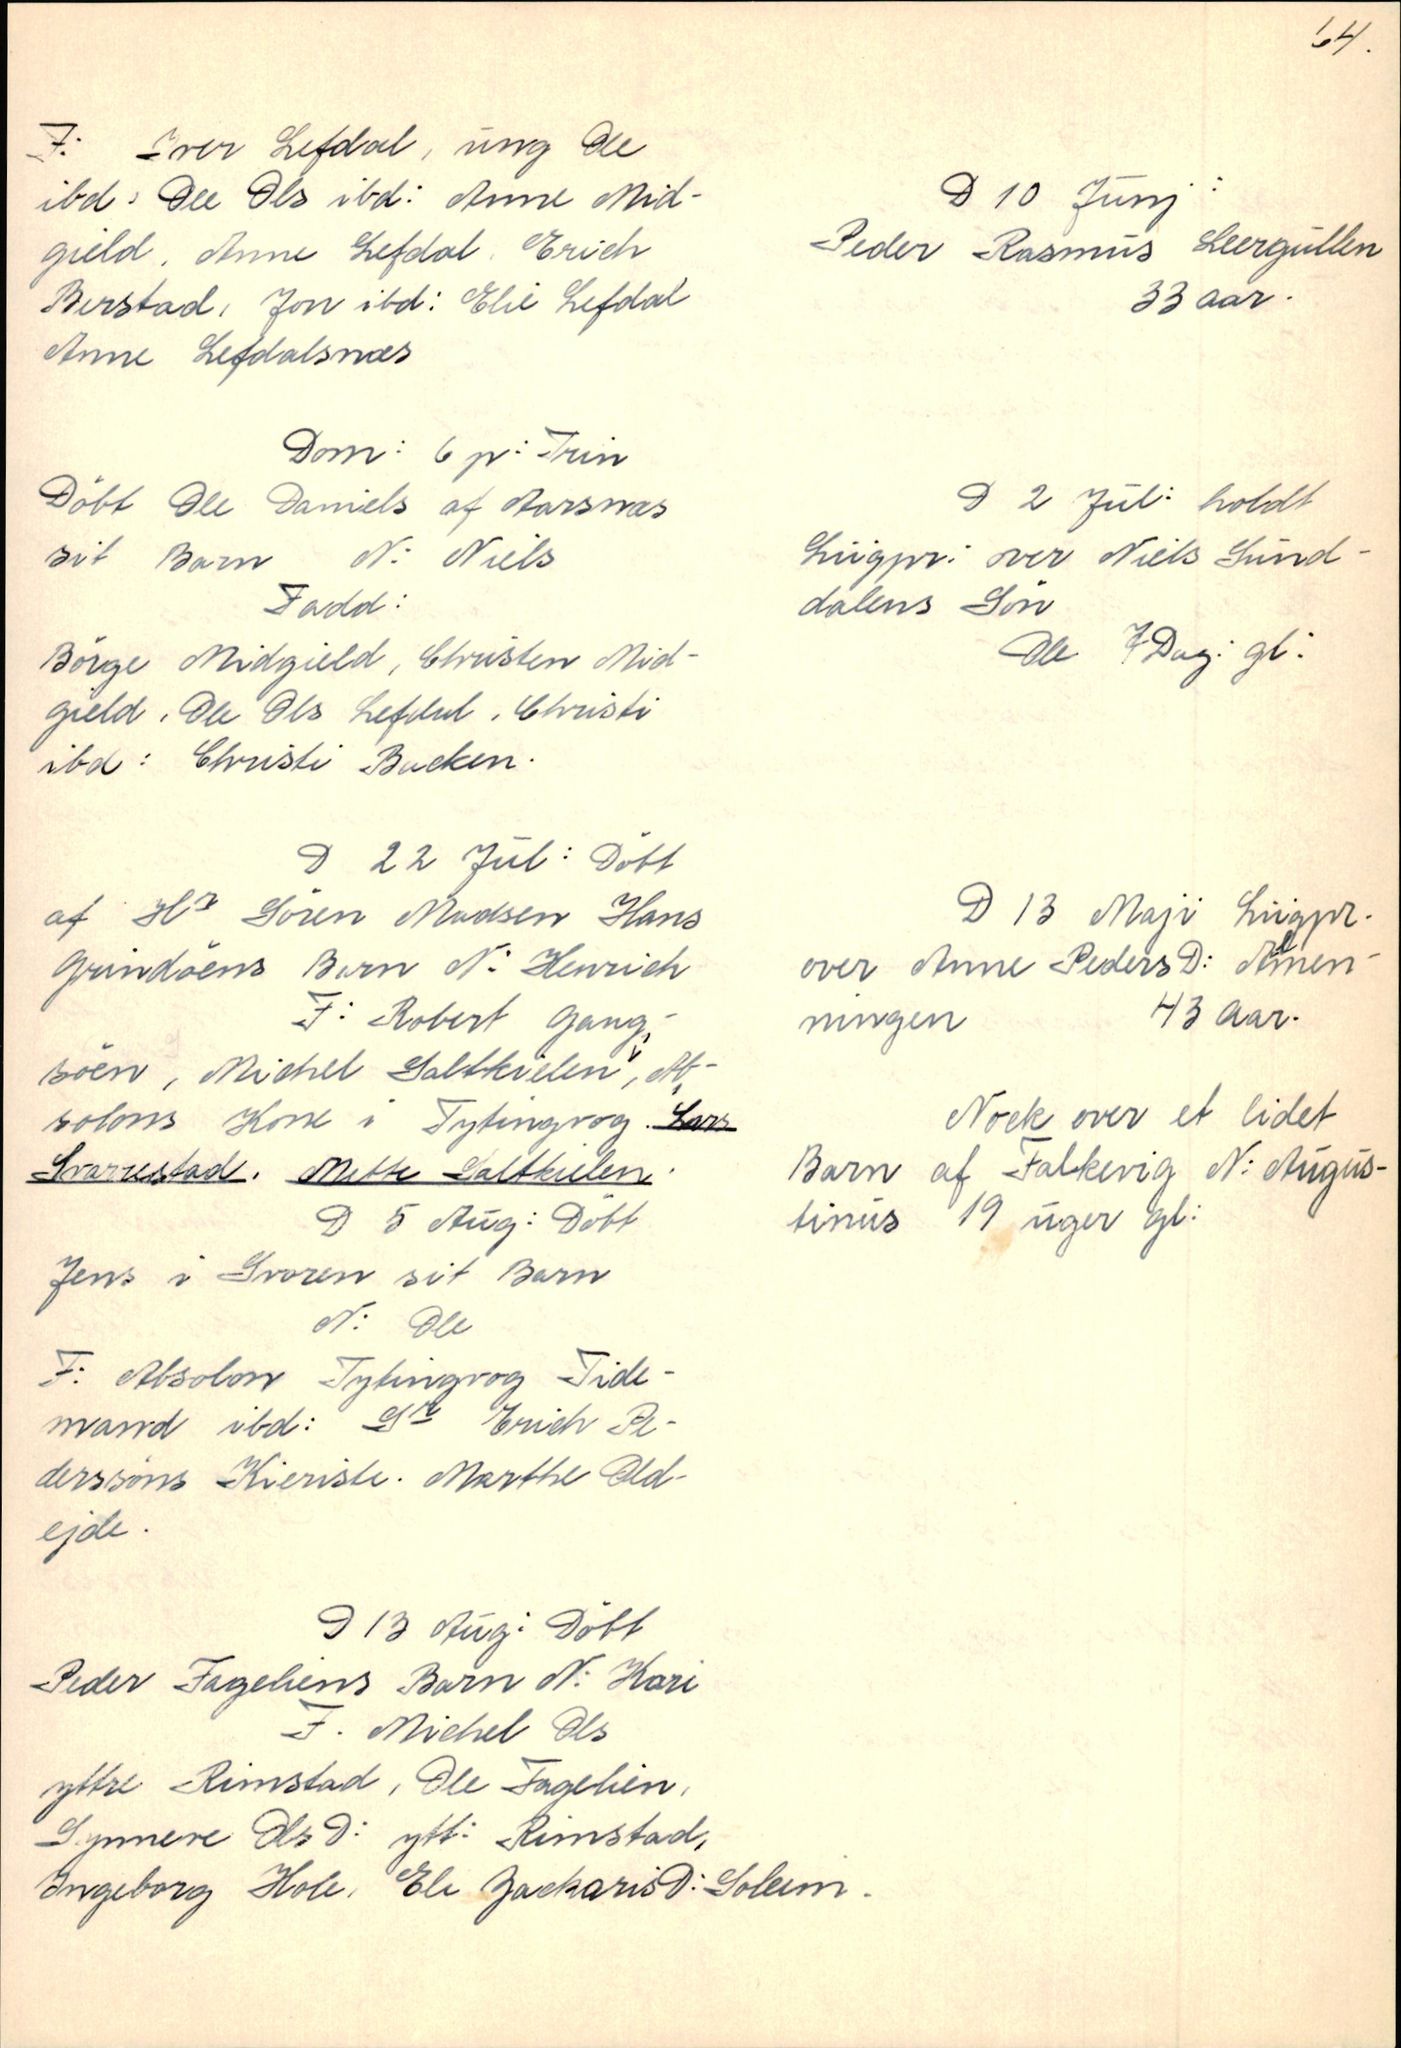 64.
F: Iver Lefdal, ung Ole
ibd: Ole Ols ibd: Anne Mid-
gield, Anne Lefdal, Erich
Berstad, Jon ibd: Elie Lefdal
Anne Lefdalsnæs
Dom: 6 p: Trin
Döbt Ole Daniels af Aarsnæs
sit Barn N: Niels
Fadd:
Börge Midgield, Christen Mid-
gield, Ole Ols Lefdal, Christi
ibd: Christi Backen.
D 22 Jul: Döbt
af Hr Sören Madsen Hans
Grindöens Barn N: Henrich
F: Robert Gang-
söen, Michel Saltkielen, Ab-
solons Kone i Tytingvog. Lars
Svarrestad. Mette Saltkielen.
D 5 Aug: Döbt
Jens i Svoren sit Barn
N: Ole
F: Absolon Tytingvog Tide-
mand ibd: Sr Erich Pe-
derssöns Kieriste. Marthe Old-
ejde.
D 13 Aug: Döbt
Peder Fageliens Barn N: Kari
F. Michel Ols
yttre Rimstad, Ole Fagelien,
Synneve Ols D: ytt: Rimstad,
Ingeborg Hole, Eli Zacharis D: Soleim.
D 10 Junj:
Peder Rasmus Leergullen
33 aar.
D 2 Jul: holdt
Liigpr: over Niels Sund-
dalens Sön
Ole 7 Dag: gl:
D 13 Maji Liigpr.
over Anne Peders D: Almen-
ningen 43 Aar.
Nock over et lidet
Barn af Falkevig N: Augus-
tinus 19 uger gl: